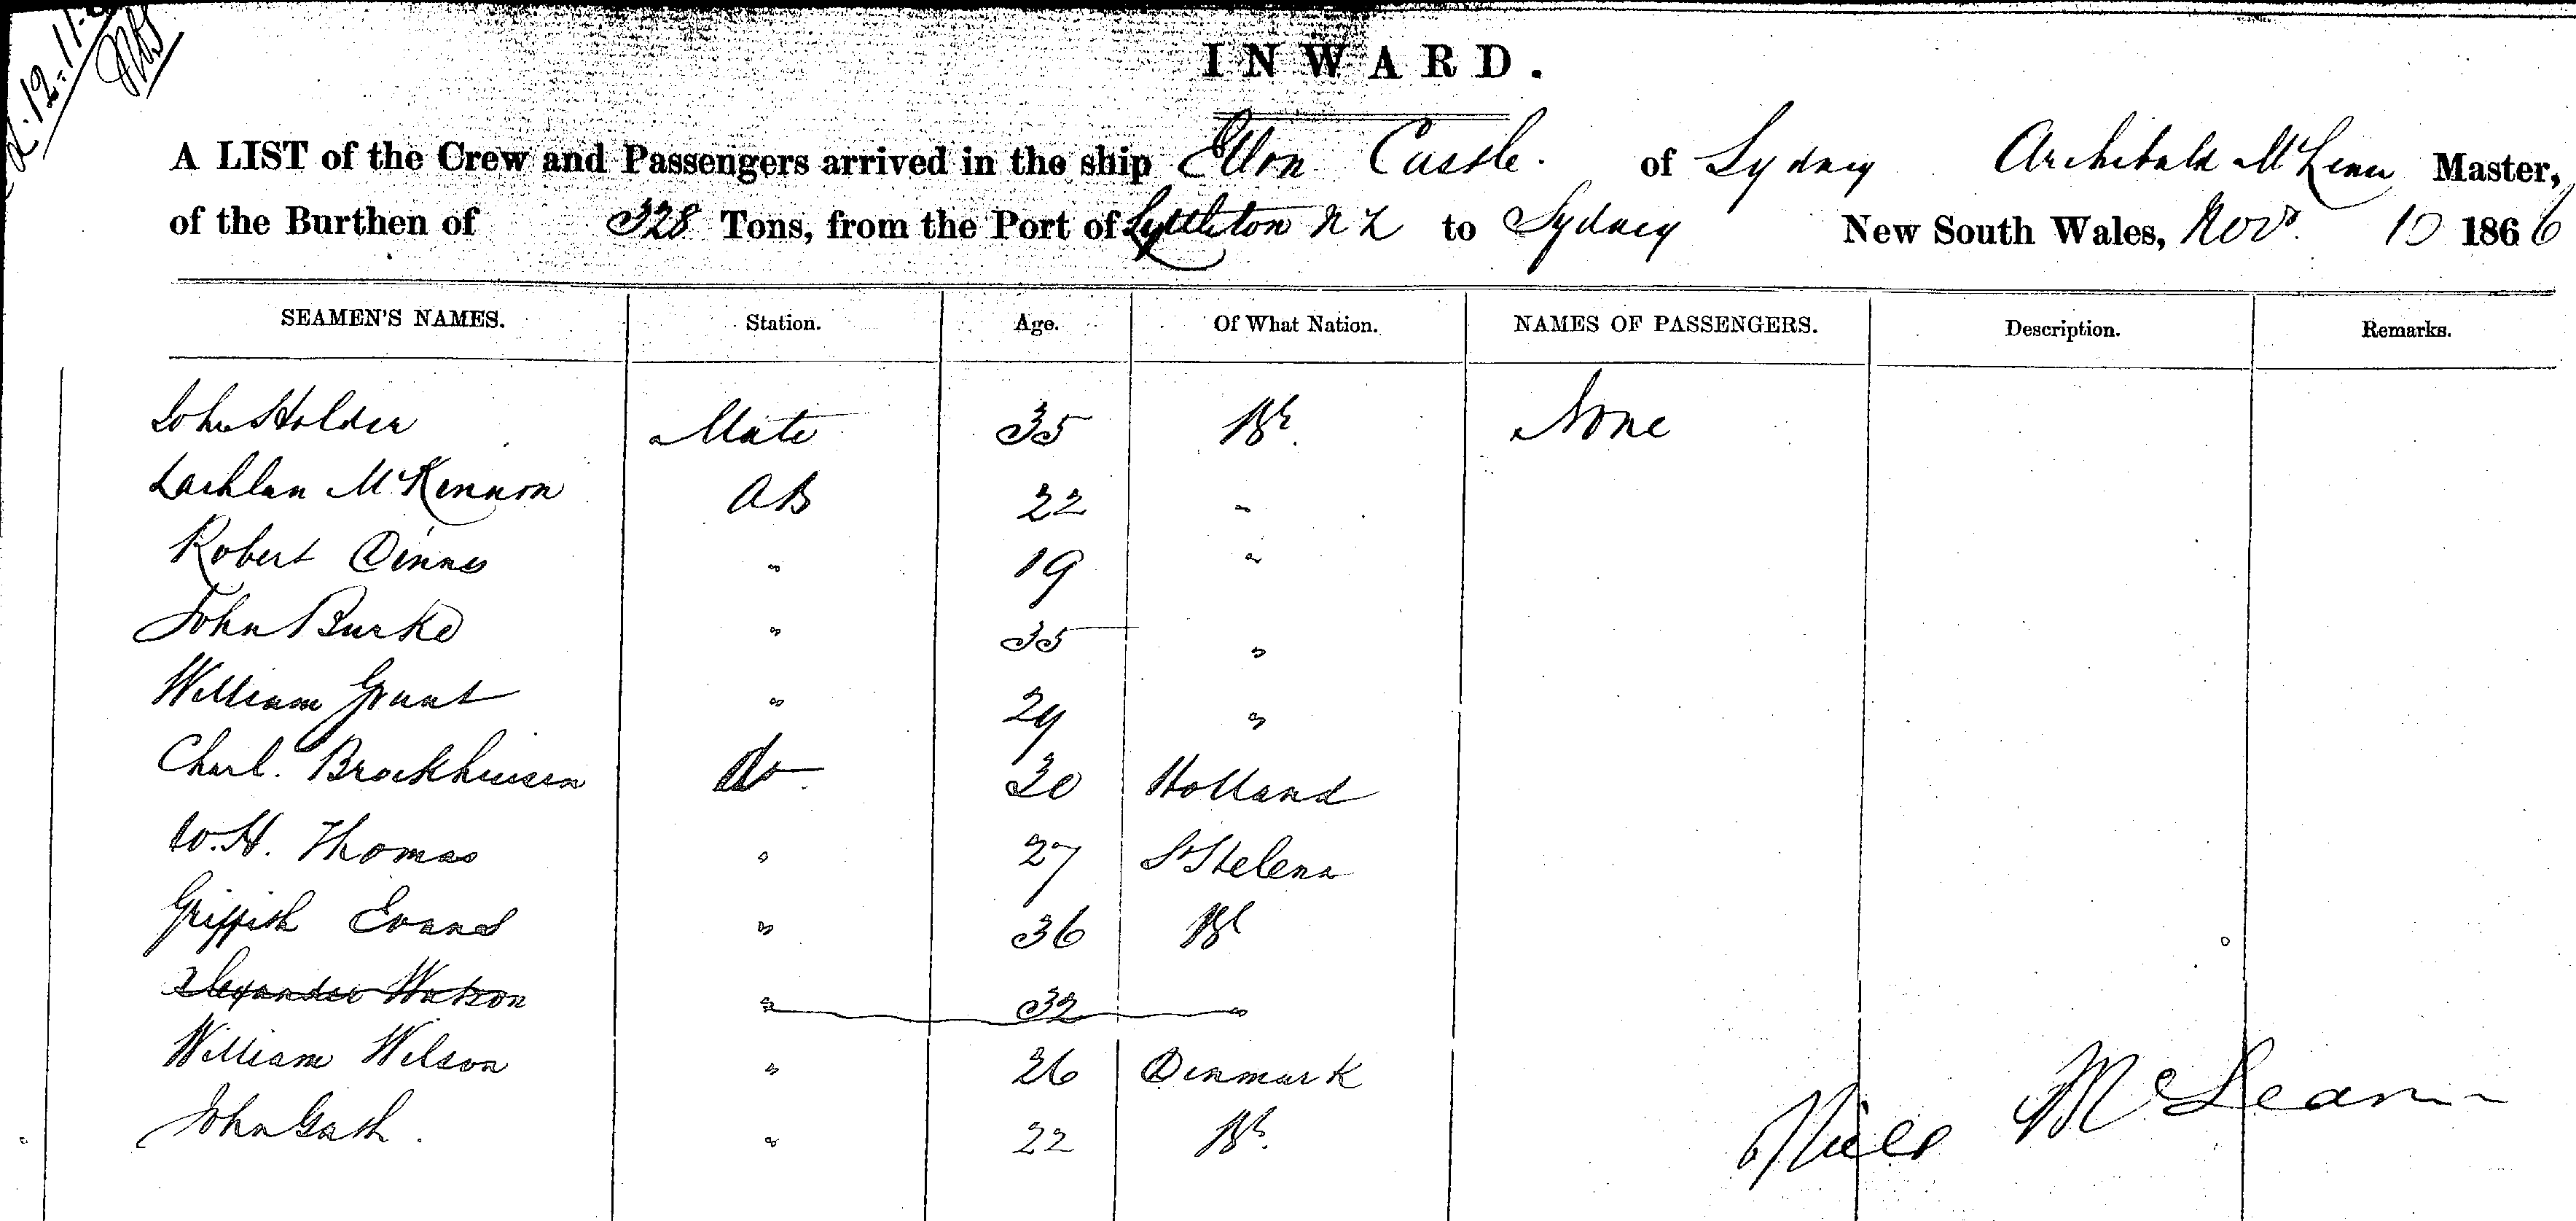 12-11-
INWARD.
A LIST of the Crew and Passengers arrived in the ship Ellon Castle. of Sydney Archibald McLean Master,
of the Burthen of 328 Tons, from the Port of Lyttleton N Z to Sydney New South Wales, Novr. 10 1866
SEAMEN'S NAMES. Station. Age. Of What Nation. NAMES OF PASSENGERS. Description. Remarks.
John Holder Mate 35 Bh. None
Lachlan McKennon AB 22 "
Robert Dinnes " 19 "
John Burke " 35 "
William Grant " 29 "
Charl. Brockhuisen Do 30 Holland
W. H. Thomas " 27 St Helena
Griffith Evans " 36 Bh
Alexander Watson " 32 "
William Wilson " 26 Denmark
John Gash. " 22 Bh.
McLean